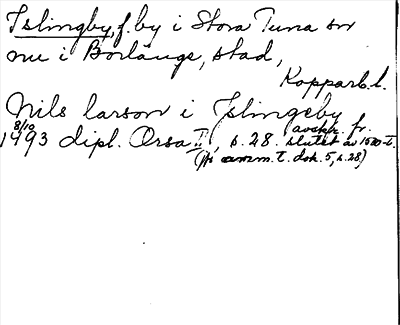 Islingby, f. by i Stora Tuna sn
nu i Borlänge, stad,
Kopparb. l.
Nils larson i Islingeby
8/10 1493 dipl. Orsa II, s. 28. avskr. fr. slutet av 1500-t.
(jfr anm. t. dok. 5, s. 28)